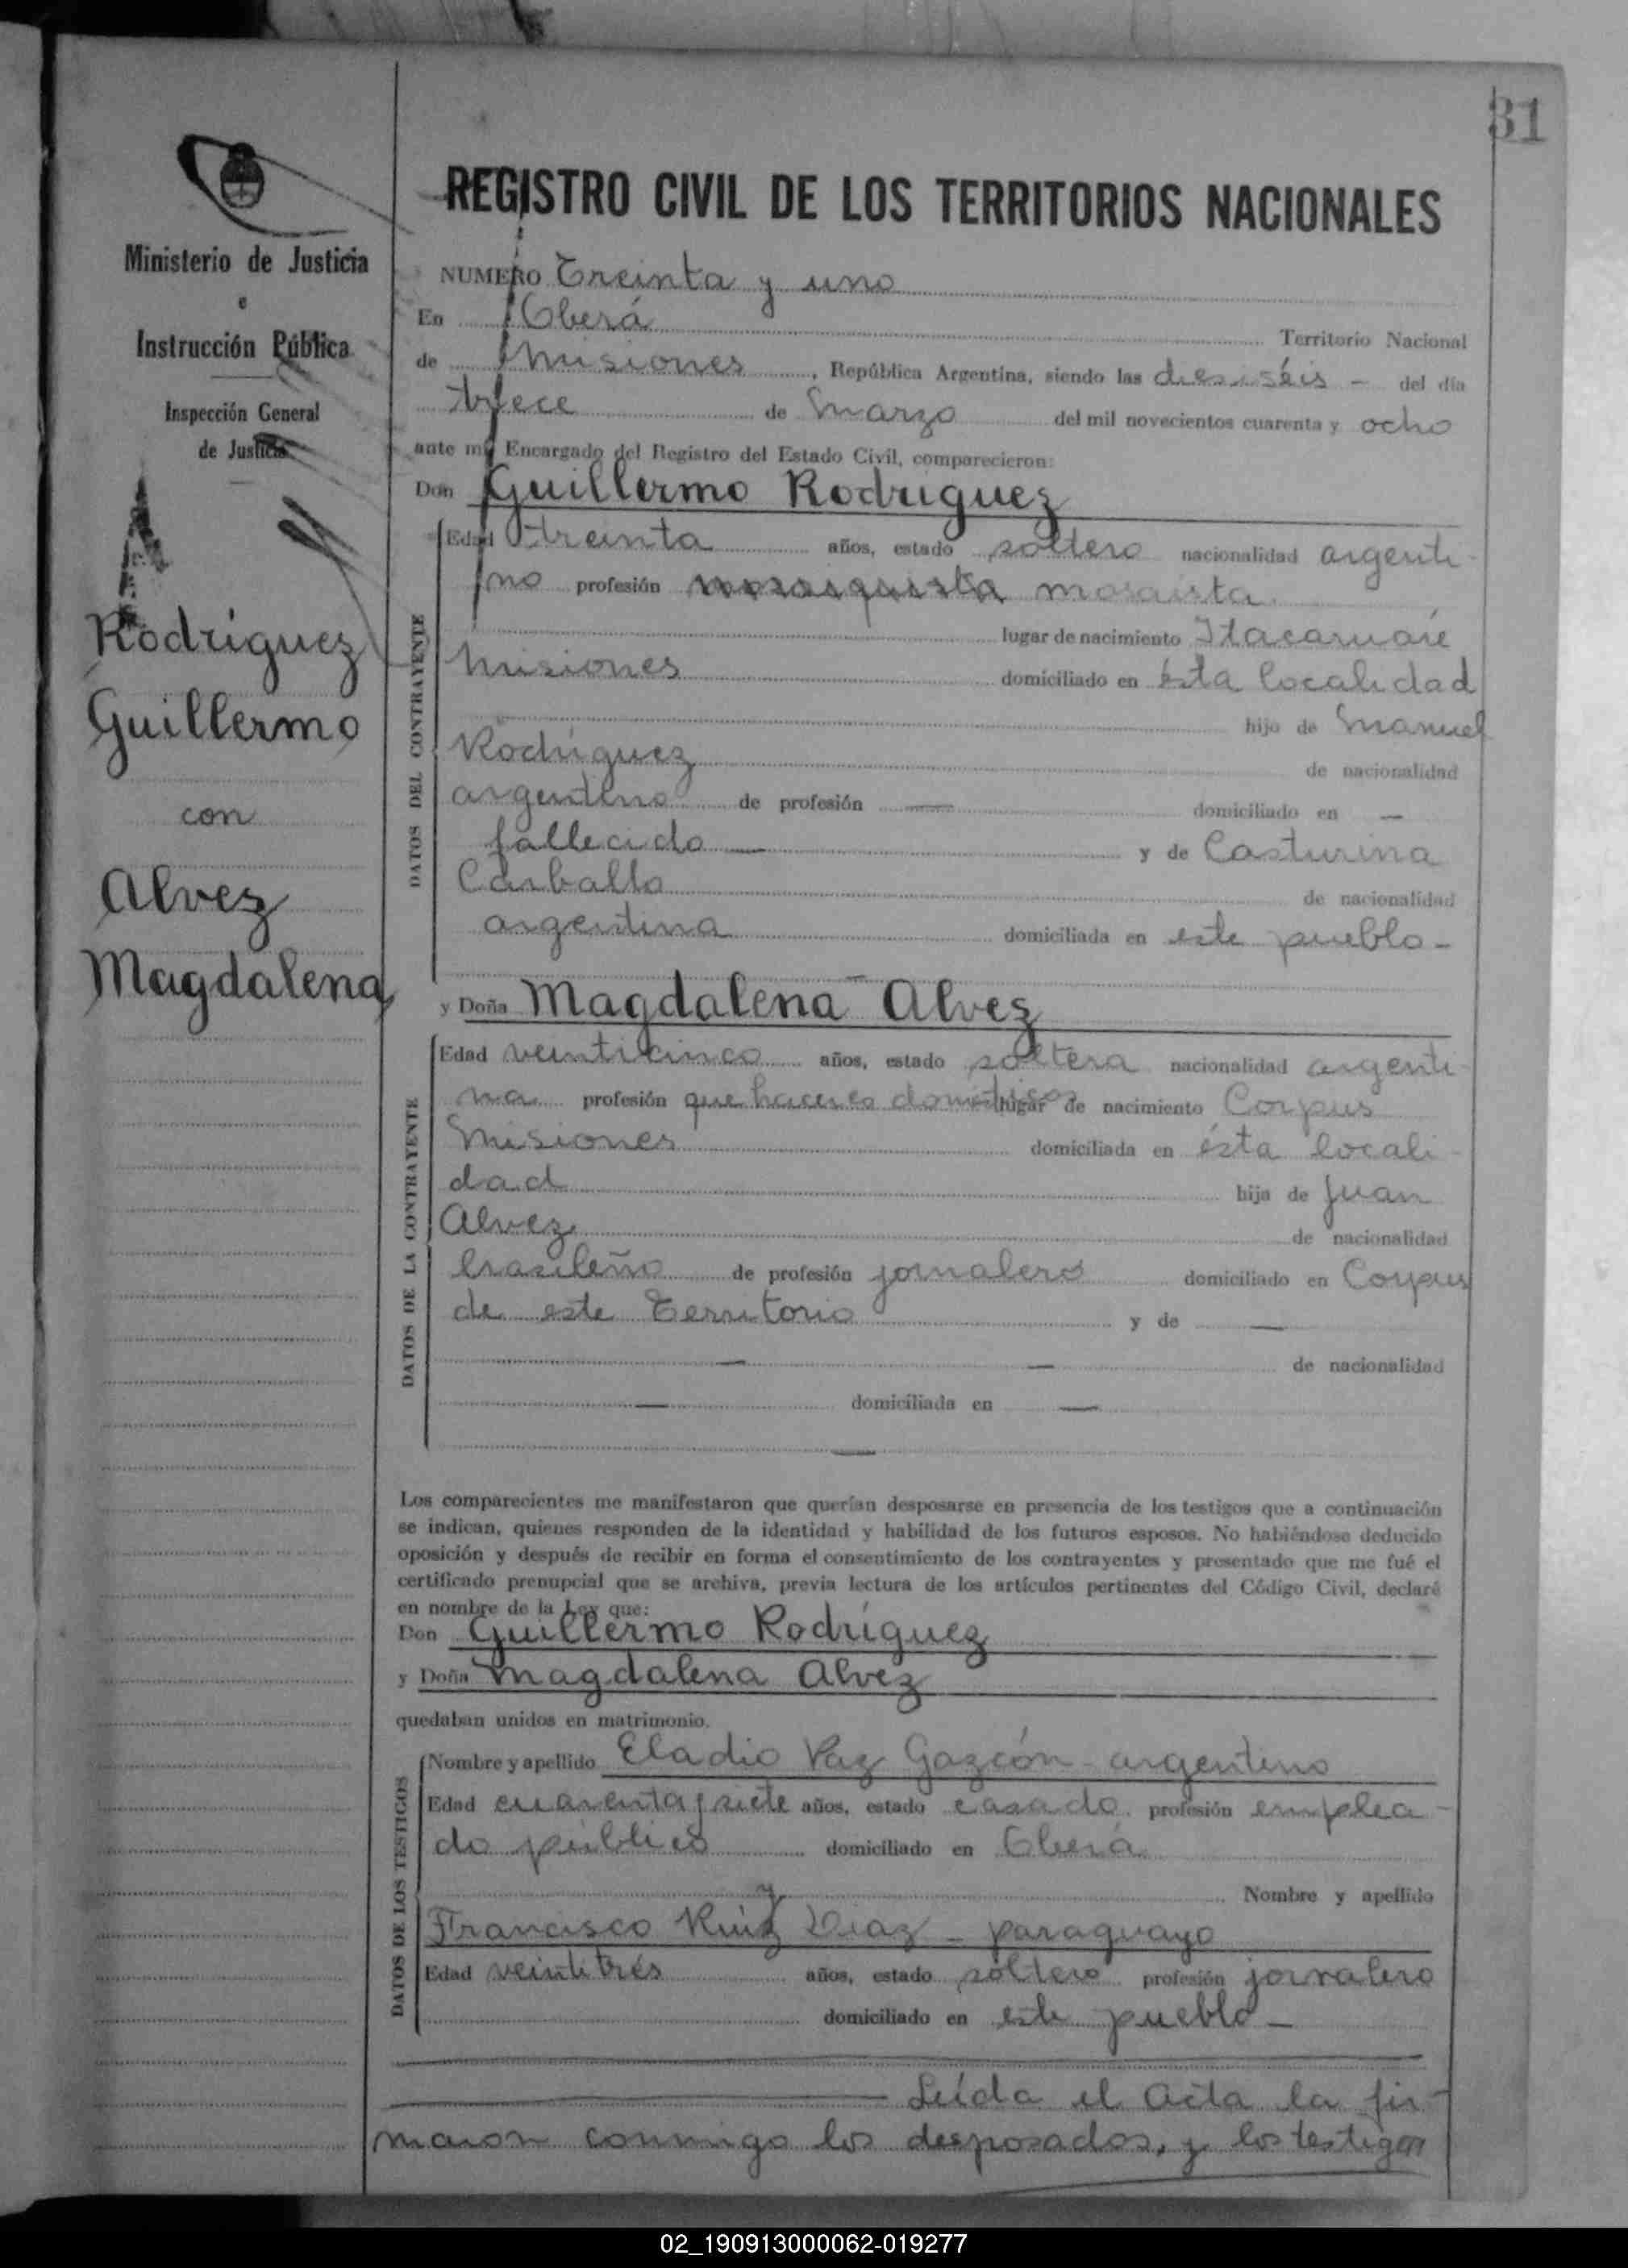 31
Ministerio de Justicia
e
Instrucción Pública
Inspección General
de Justicia
Rodríguez
Guillermo
con
Alvez
Magdalena
REGISTRO CIVIL DE LOS TERRITORIOS NACIONALES
NUMERO Treinta y uno
En Oberá Territorio Nacional
de Misiones, República Argentina, siendo las dieciséis - del día
trece de Marzo del mil novecientos cuarenta y ocho
ante mí Encargado del Registro del Estado Civil, comparecieron:
Don Guillermo Rodríguez
DATOS DEL CONTRAYENTE
Edad treinta años, estado soltero nacionalidad argenti-
no profesión mosaista
lugar de nacimiento Itacaruaré
Misiones domiciliado en ésta localidad
hijo de Manuel
Rodríguez de nacionalidad
argentino de profesión — domiciliado en —
fallecido — y de Casturina
Carballo de nacionalidad
argentina domiciliada en este pueblo -
y Doña Magdalena Alvez
DATOS DE LA CONTRAYENTE
Edad veinticinco años, estado soltera nacionalidad argenti-
na profesión que haceres domésticos lugar de nacimiento Corpus
Misiones domiciliada en ésta locali-
dad hija de Juan
Alvez de nacionalidad
brasileño de profesión jornalero domiciliado en Corpus
de este Territorio y de —
— — de nacionalidad
— domiciliada en —
—
Los comparecientes me manifestaron que querían desposarse en presencia de los testigos que a continuación
se indican, quienes responden de la identidad y habilidad de los futuros esposos. No habiéndose deducido
oposición y después de recibir en forma el consentimiento de los contrayentes y presentado que me fué el
certificado prenupcial que se archiva, previa lectura de los artículos pertinentes del Código Civil, declaré
en nombre de la Ley que:
Don Guillermo Rodríguez
y Doña Magdalena Alvez
quedaban unidos en matrimonio.
DATOS DE LOS TESTIGOS
Nombre y apellido Eladio Paz Gazcón - argentino
Edad cuarenta y siete años, estado casado profesión emplea-
do público domiciliado en Oberá
y Nombre y apellido
Francisco Ruiz Diaz - paraguayo
Edad veintitrés años, estado soltero profesión jornalero
domiciliado en este pueblo -
Leída el Acta la fir-
maron conmigo los desposados, y los testigos
02_190913000062-019277